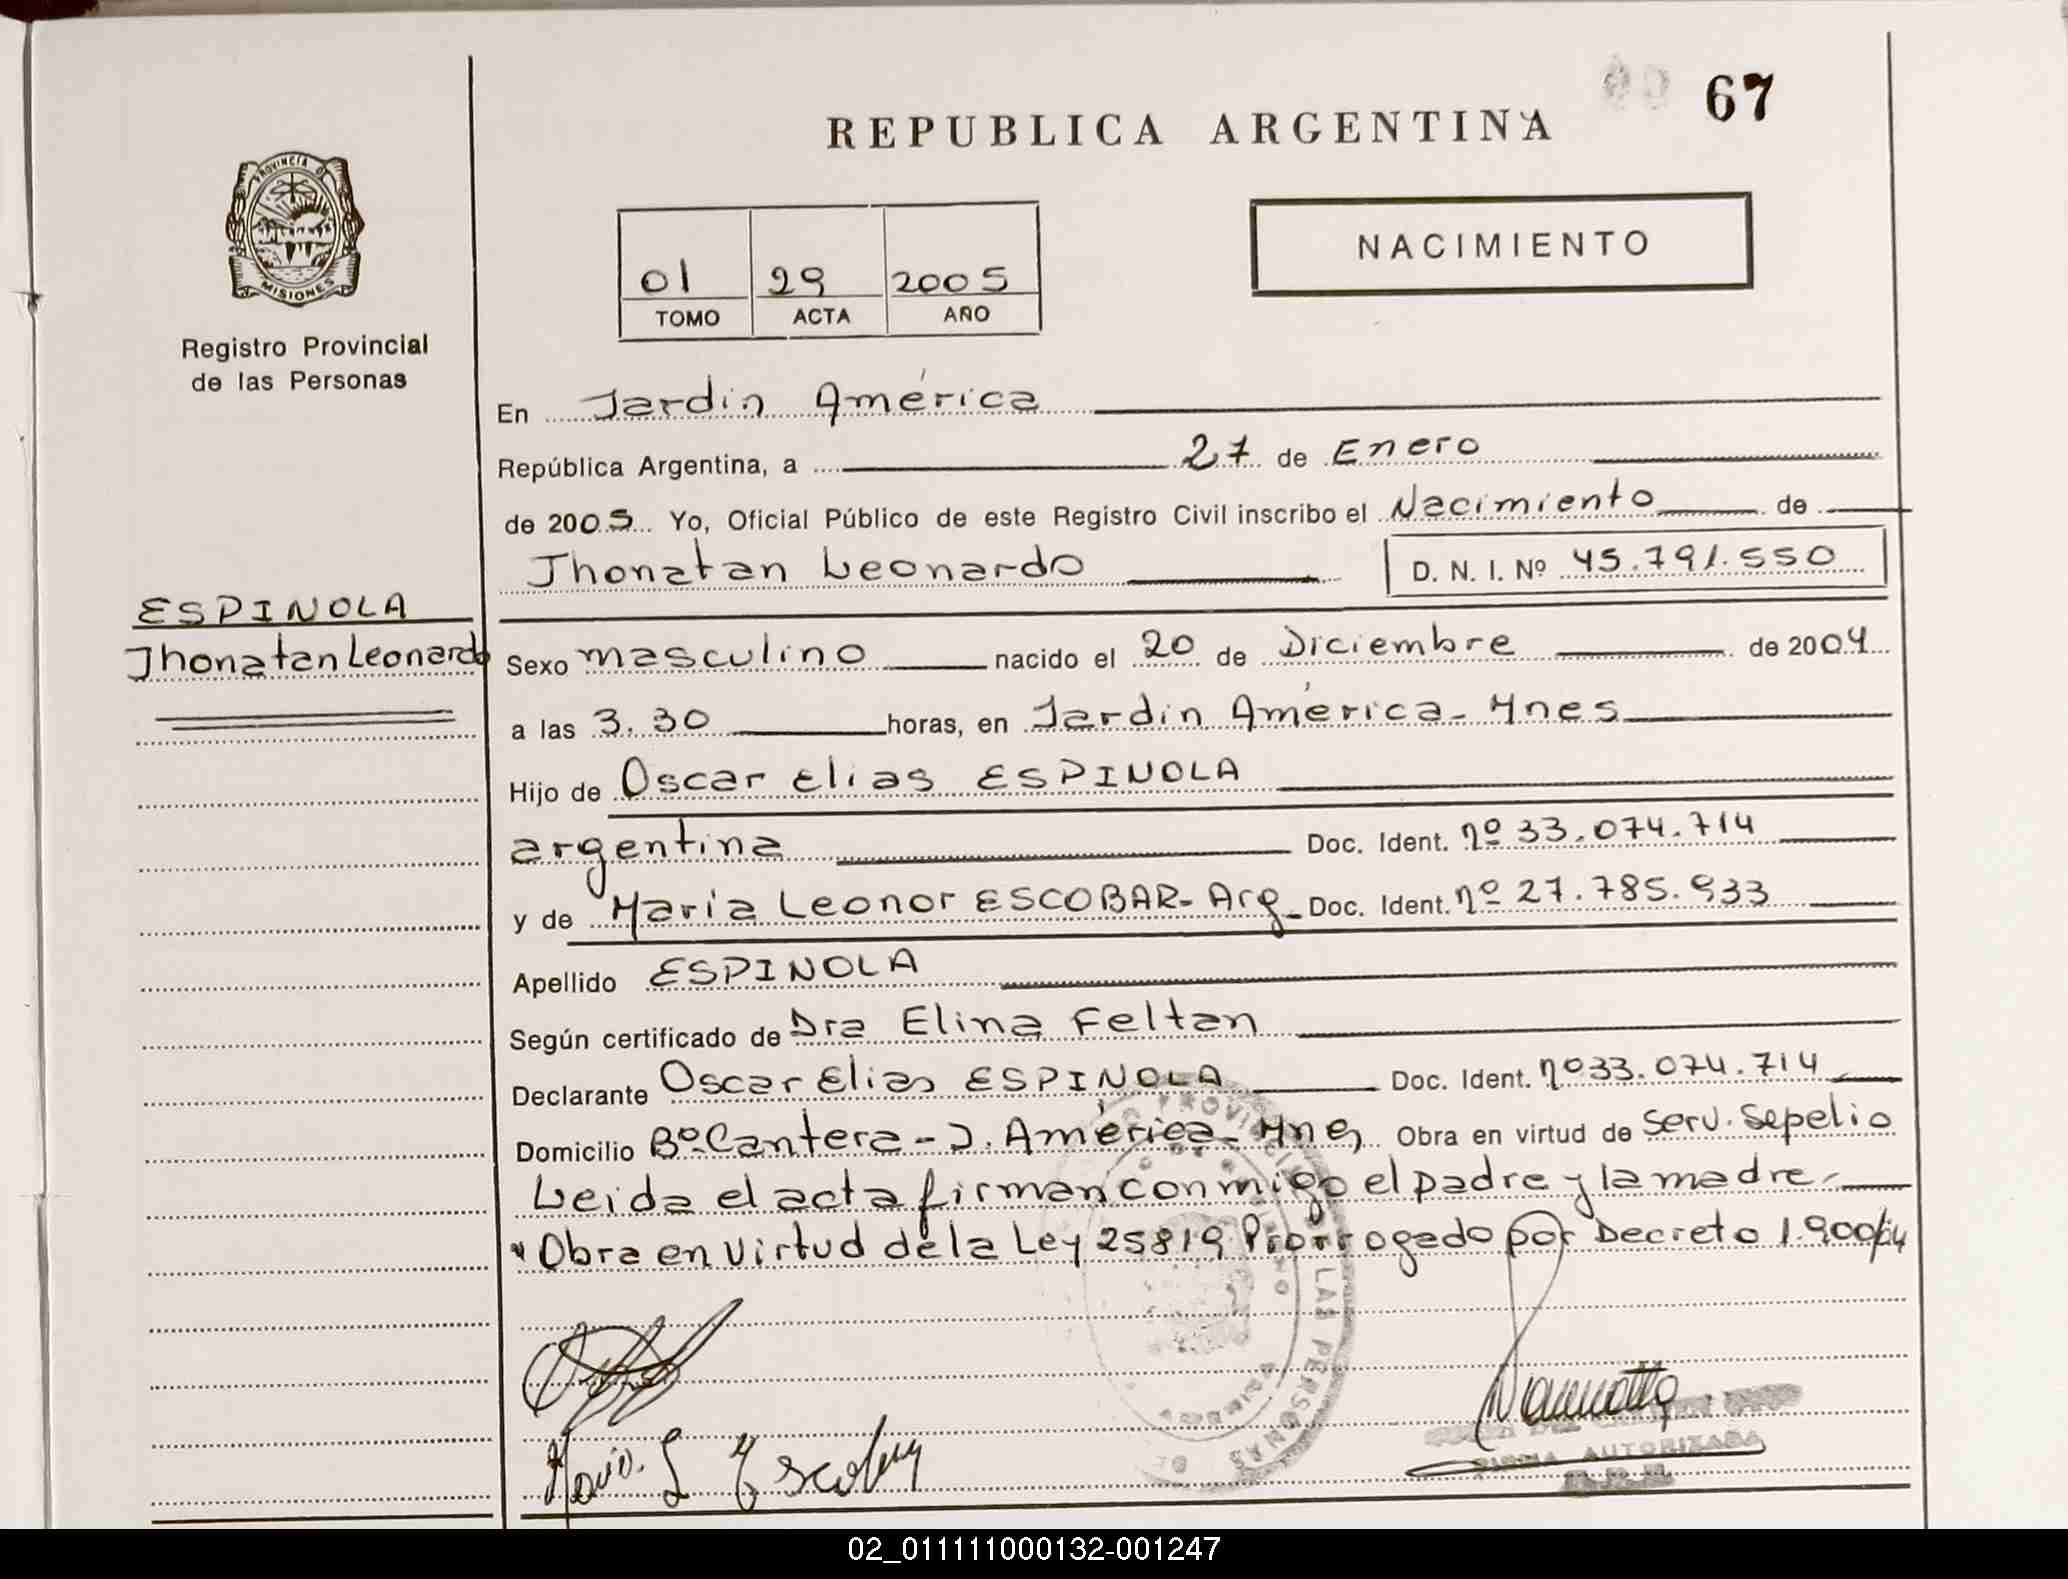 67
REPUBLICA ARGENTINA
PROVINCIA DE
MISIONES
Registro Provincial
de las Personas
01 29 2005
TOMO ACTA AÑO
NACIMIENTO
En Jardin América
República Argentina, a 27 de Enero
de 2005 Yo, Oficial Público de este Registro Civil inscribo el Nacimiento de
Jhonatan Leonardo D. N. I. Nº 45.791.550
ESPINOLA
Jhonatan Leonardo
Sexo masculino nacido el 20 de Diciembre de 2004
a las 3.30 horas, en Jardin América - Mnes
Hijo de Oscar Elias ESPINOLA
argentina Doc. Ident. nº 33.074.714
y de Maria Leonor ESCOBAR - Arg - Doc. Ident. nº 27.785.933
Apellido ESPINOLA
Según certificado de Dra Elina Feltan
Declarante Oscar Elias ESPINOLA Doc. Ident. nº 33.074.714
Domicilio Bº Cantera - J. América - Mnes Obra en virtud de Serv. Sepelio
Leida el acta firman conmigo el padre y la madre
* Obra en virtud de la Ley 25819 Prorrogado por Decreto 1.900/04
PROVINCIAL DE LAS PERSONAS
Maria L Escobar
FIRMA AUTORIZADA
02_011111000132-001247